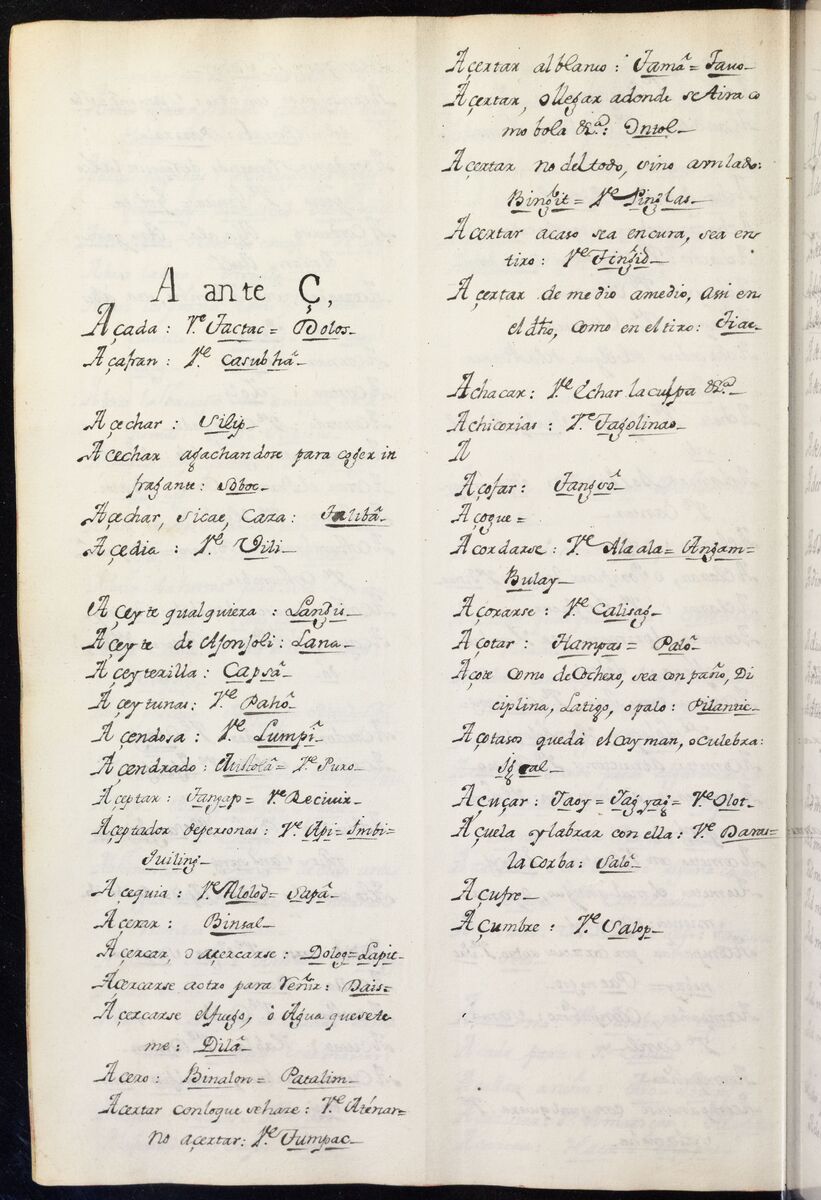 A ante Ç,
Açada: Vᵉ. Tactac= Bolos_
Açafran: Vᵉ. Casubhâ_
Açechar: Silip_
Acechar agachandose para coger in
fragante: Soboc_
Açechar, sicae, caza: Talibâ_
Açedia: Vᵉ. Vili_
Açeyte qualquiera: Langis_
Açeyte de Asonjoli: Lana_
Açeyterilla: Capsâ_
Açeytunas: Vᵉ. Pahô_
Açendosa: Vᵉ. Lumpî_
Açendrado: = Vᵉ. Puro_
Açeptar: Tangap= Vᵉ. Recivir_
Açeptador depersonas: Vᵉ. Api= Imbi=
Tuiling_
Açequia: Vᵉ. Alolod= Sapâ_
Açerar: Binsal_
Açercar, o açercarse: Dolog= Lapit_
Açercarse aotro para Reñir: Dais=
Açercarse alfuego, ò Agua quesete
me: Dilâ_
Açero: Binalon= Patalim_
Acertar conloque sehaze: Vᵉ. Atênar_
no açertar: Vᵉ. Tumpac_
Açertar alblanco: Tamâ= Tavo_
Açertar, o llegar adonde setira co
mo bola &ᵃ: Ontol_
Açertar no deltodo, sino amlado:
Bingit= Vᵉ. Pinglas_
Acertar acaso sea encura, sea en
tiro: Vᵉ. Tingid_
Açertar de medio amedio, assi en
el dho, como en el tiro: Tiac_
Achacar: Vᵉ. Echar la culpa &ᵃ_
Achicorias: Vᵉ. Tagolinao_
A
Açofar: Tangsô_
Açogue=
Acordarse: Vᵉ. Alaala= Angam=
Bulay_
Açorarse: Vᵉ. Calisag_
Açotar: Hampas= Palô_
Açote como deCochero, sea con paño, Di
ciplina, Latigo, o palo: Pilantic_
Açotasos quedà el cayman, o culebra:
Açuçar: Taoy= Tag yag= Vᵉ. Olot_
Açuela y labrar con ella: Vᵉ. Daras=
la corba: Salô_
Açufre_
Açumbre: Vᵉ. Salop_